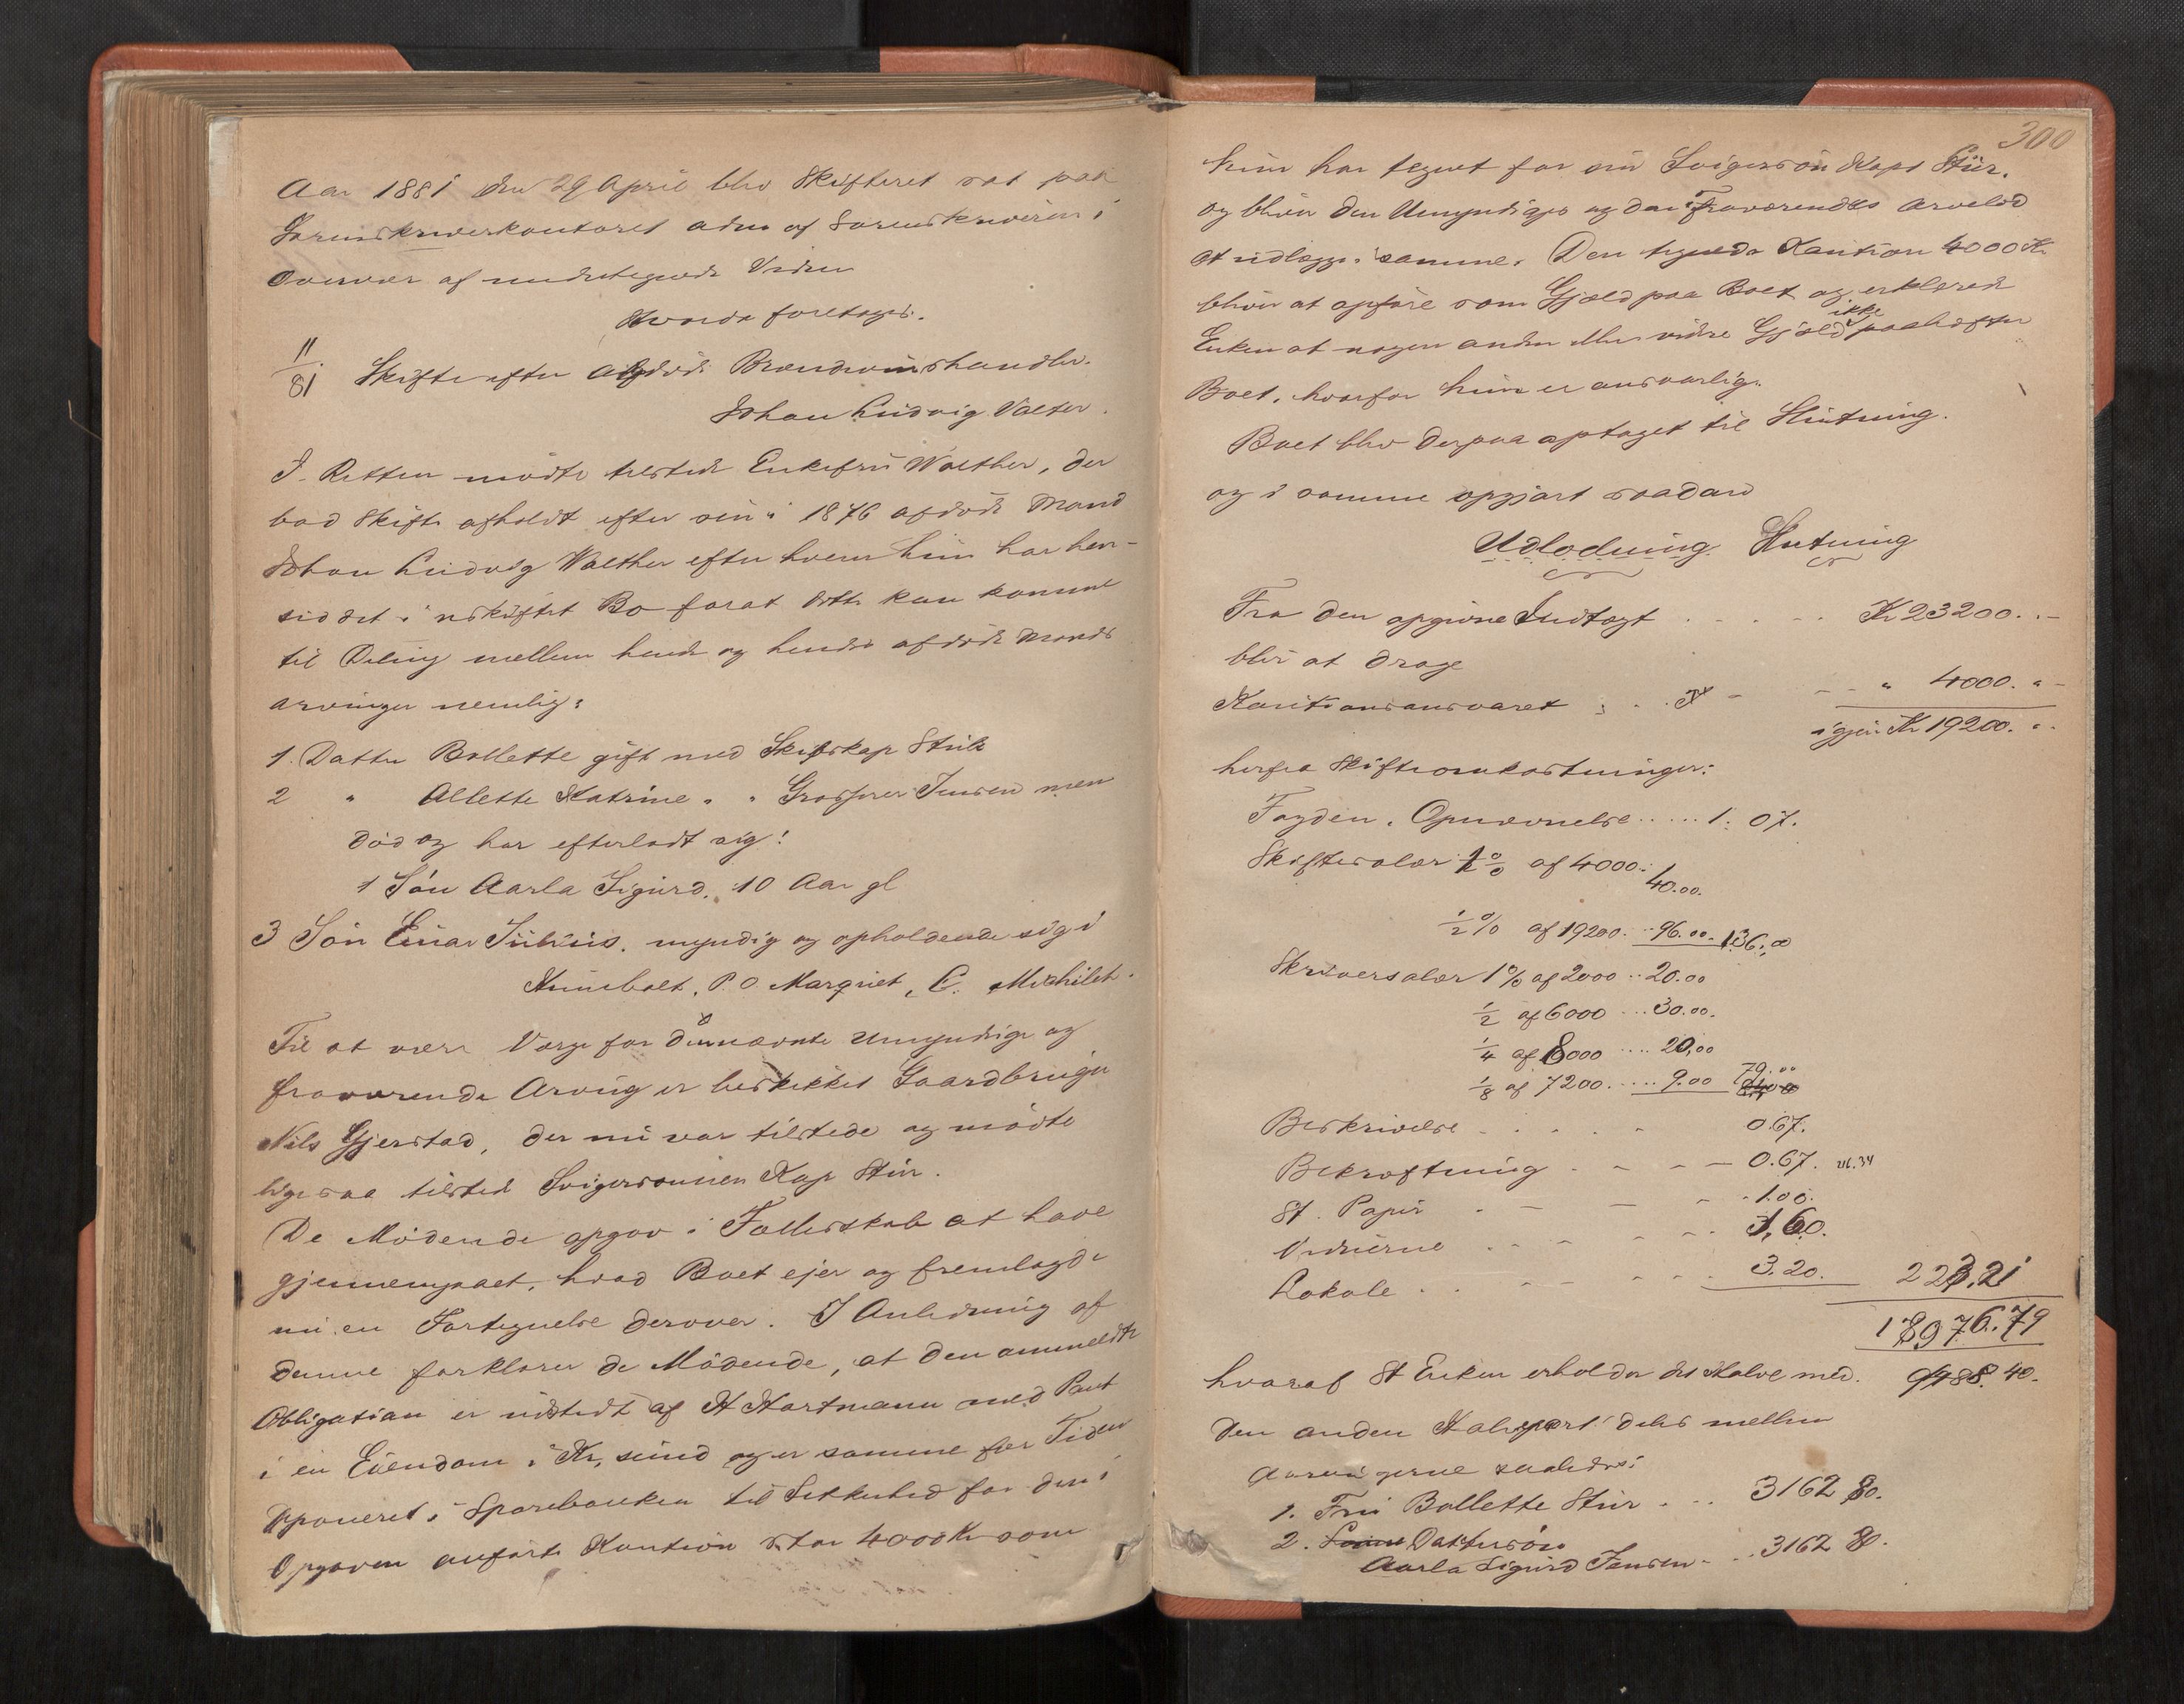 Aar 1881 den 29 April blev Skifteret sat paa
Sorenskriverkontoret adm af Sorenskriveren i
Overvær af undertegnede Vidner
Hvorda foretoges.
11/81 Skifte efter afdøde Brændevinshandler
Johan Ludvig Valter.
I Retten mødte tilstede Enkefru Walther, der
bad Skifte afholdt efter sin i 1876 afdøde Mand
Johan Ludvig Walther efter hvem hun har hen-
siddet i uskiftet Bo forat dette kan komme
til Deling mellem hende og hendes afdøde Mands
arvinger nemlig:
1. Datter Bollette gift med Skibskap Stub
2 " Allette Katrine " " Grosserer Jensen men
død og har efterladt sig:
1 Søn Aarla Sigurd. 10 Aar gl
3 Søn Einar Julius. myndig og opholdende sig i
Humbolt, P.O Marquet, C. Michilet.
Til at være Værge for de unævnte Umyndige og
fraværende Arving er beskikket Gaardbruger
Nils Gjerstad, der nu var tilstede og mødte
ligesaa tilstede Svigersønnen Kap Stur.
De Mødende opgav i Fællesskab at have
gjennemgaaet, hvad Boet ejer og fremlagde
nu en Fortegnelse derover. I Anledning af
denne forklarer de Mødende, at den anmeldte
Obligation er udstedt af H Hartmann med Pant
i en Eiendom i Kr, sund og er samme for Tiden
deponeret i Sparebanken til Sikkerhed for den i
Opgaven anførte Kaution stor 4000 Kr som
300
hun har tegnet for sin Svigersøn Kapt Stür.
og bliver den Umyndiges og den Fraværendes Arvelod
at udlægge i samme. Den tegnede Kaution 4000 Kr
bliver at opføre som Gjæld paa Boet og erklærede
Enken at nogen anden eller videre Gjæld ikke paahefter
Boet, hvorfor hun er ansvarlig.
Boet blev derpaa optaget til Slutning.
og i samme opgjort saadan
Udlodning Slutning
Fra den opgivne Indtægt . . . . . Kr 23200. . -
blir at drage
Kautionsansvaret : . . - - - " 4000. " -
igjen Kr 19200. " .
herfra Skifteomkostninger:
Fogden. Opnævnelse ..... 1. 07.
Skiftesalær 1 % af 4000. 40.00.
1/2 % af 19200. .. 96.00. 136,00
Skriversalær 1 % af 2000 .. 20.00
1/2 af 6000 ... 30.00.
1/4 af 8000 .... 20,00
1/8 af 7200. .... 9.00 79.00
Beskrivelse . . . . . 0.67.
Bekræftning . - - - 0.67. 216.34
St. Papir . - - - - 1.00.
Vidnerne . - - - - . 1,60.
Lokale . . - - - - . 3.20. 223.21
18976.79
hvoraf St Enken erholder det Halve med. 9488.40.
Den anden Halvpart deles mellem
Arvingerne saaledes:
1. Fru Bollette Stur . . . 3162 80.
2. Dattersøn
Aarla Sigurd Jensen - . . 3162 80.